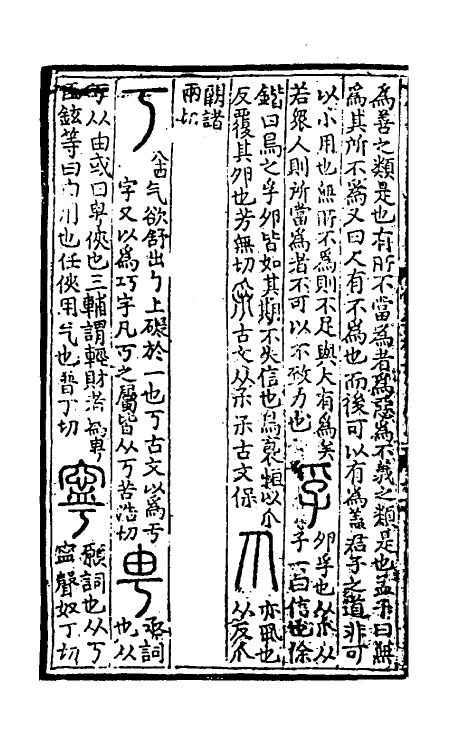 爲善之類是也有所不當爲者爲惡爲不義之類是也孟子曰無
爲其所不爲又曰人有不爲也而後可以有爲蓋君子之道非可
以小用也無所不爲則不足與大有爲矣
若衆人則所當爲者不可以不致力也
孚 卵孚也从爪从子一曰信也徐
鍇曰鳥之孚卵皆如其期不失信也鳥裹恒以爪
反覆其卵也芳無切 古文从𤓽𤓽古文保
亦丮也
从反爪
闕諸
兩切
丂 气欲舒出勹上礙於一也丂古文以爲亏
字又以爲巧字凡丂之屬皆从丂苦浩切
甹 亟詞
也从
丂从由或曰甹俠也三輔謂輕財者爲甹
鉉等曰由用也任俠用气也普丁切
寧 願詞也从丂
寍聲奴丁切